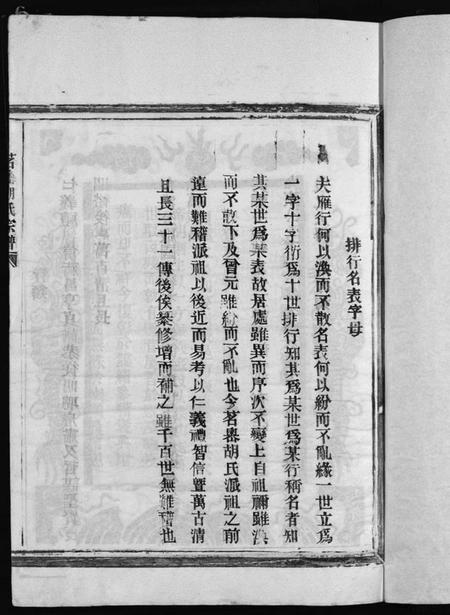 排行名表字母
夫雁行何以渙而不散名表何以紛而不亂緣一世立爲
一字十字衍爲十世排行知其爲某世爲某行稱名者知
其某世爲某表故居處雖異而序次不變上自祖禰雖渙
而不散下及曾元雖紛而不亂也今茗嶴胡氏派祖之前
遠而難稽派祖以後近而易考以仁義禮智信曁萬古清
且長三十一傳後俟纂修增而補之雖千百世無難稽也
胡氏宗譜